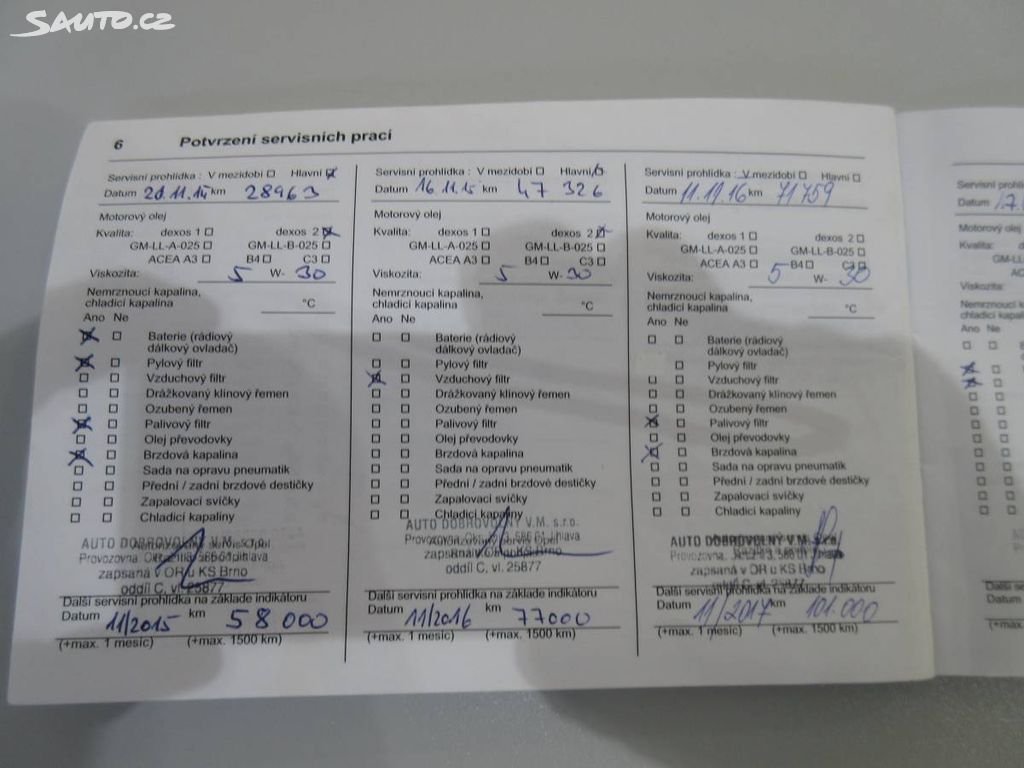 SAUTO.CZ
6 Potvrzení servisních prací
Servisní prohlídka : V mezidobí Hlavní
Datum 20.11.14 km 28963
Motorový olej
Kvalita: dexos 1 dexos 2
GM-LL-A-025 GM-LL-B-025
ACEA A3 B4 C3
Viskozita: 5 W- 30
Nemrznoucí kapalina,
chladicí kapalina °C
Ano Ne
Baterie (rádiový
dálkový ovladač)
Pylový filtr
Vzduchový filtr
Drážkovaný klínový řemen
Ozubený řemen
Palivový filtr
Olej převodovky
Brzdová kapalina
Sada na opravu pneumatik
Přední / zadní brzdové destičky
Zapalovací svíčky
Chladicí kapaliny
AUTO DOBROVOLNÝ V.M. s.r.o.
Provozovna: Jihlava
zapsaná v OR u KS Brno
oddíl C, vl. 25877
Další servisní prohlídka na základě indikátoru
Datum 11/2015 km 58 000
(+max. 1 měsíc) (+max. 1500 km)
Servisní prohlídka : V mezidobí Hlavní
Datum 16.11.15 km 47 326
Motorový olej
Kvalita: dexos 1 dexos 2
GM-LL-A-025 GM-LL-B-025
ACEA A3 B4 C3
Viskozita: 5 W- 30
Nemrznoucí kapalina,
chladicí kapalina °C
Ano Ne
Baterie (rádiový
dálkový ovladač)
Pylový filtr
Vzduchový filtr
Drážkovaný klínový řemen
Ozubený řemen
Palivový filtr
Olej převodovky
Brzdová kapalina
Sada na opravu pneumatik
Přední / zadní brzdové destičky
Zapalovací svíčky
Chladicí kapaliny
AUTO DOBROVOLNÝ V.M. s.r.o.
Provozovna: 586 01 Jihlava
zapsaná v OR u KS Brno
oddíl C, vl. 25877
Další servisní prohlídka na základě indikátoru
Datum 11/2016 km 77000
(+max. 1 měsíc) (+max. 1500 km)
Servisní prohlídka : V mezidobí Hlavní
Datum 11.11.16 km 71759
Motorový olej
Kvalita: dexos 1 dexos 2
GM-LL-A-025 GM-LL-B-025
ACEA A3 B4 C3
Viskozita: 5 W- 30
Nemrznoucí kapalina,
chladicí kapalina °C
Ano Ne
Baterie (rádiový
dálkový ovladač)
Pylový filtr
Vzduchový filtr
Drážkovaný klínový řemen
Ozubený řemen
Palivový filtr
Olej převodovky
Brzdová kapalina
Sada na opravu pneumatik
Přední / zadní brzdové destičky
Zapalovací svíčky
Chladicí kapaliny
AUTO DOBROVOLNÝ V.M. s.r.o.
Provozovna: Jihlava
zapsaná v OR u KS Brno
oddíl C, vl. 25877
Další servisní prohlídka na základě indikátoru
Datum 11/2017 km 101.000
(+max. 1 měsíc) (+max. 1500 km)
Servisní
Datum
Motorový olej
Kvalita:
Viskozita:
Nemrznoucí
chladicí kapalina
Ano Ne
Další
Datum